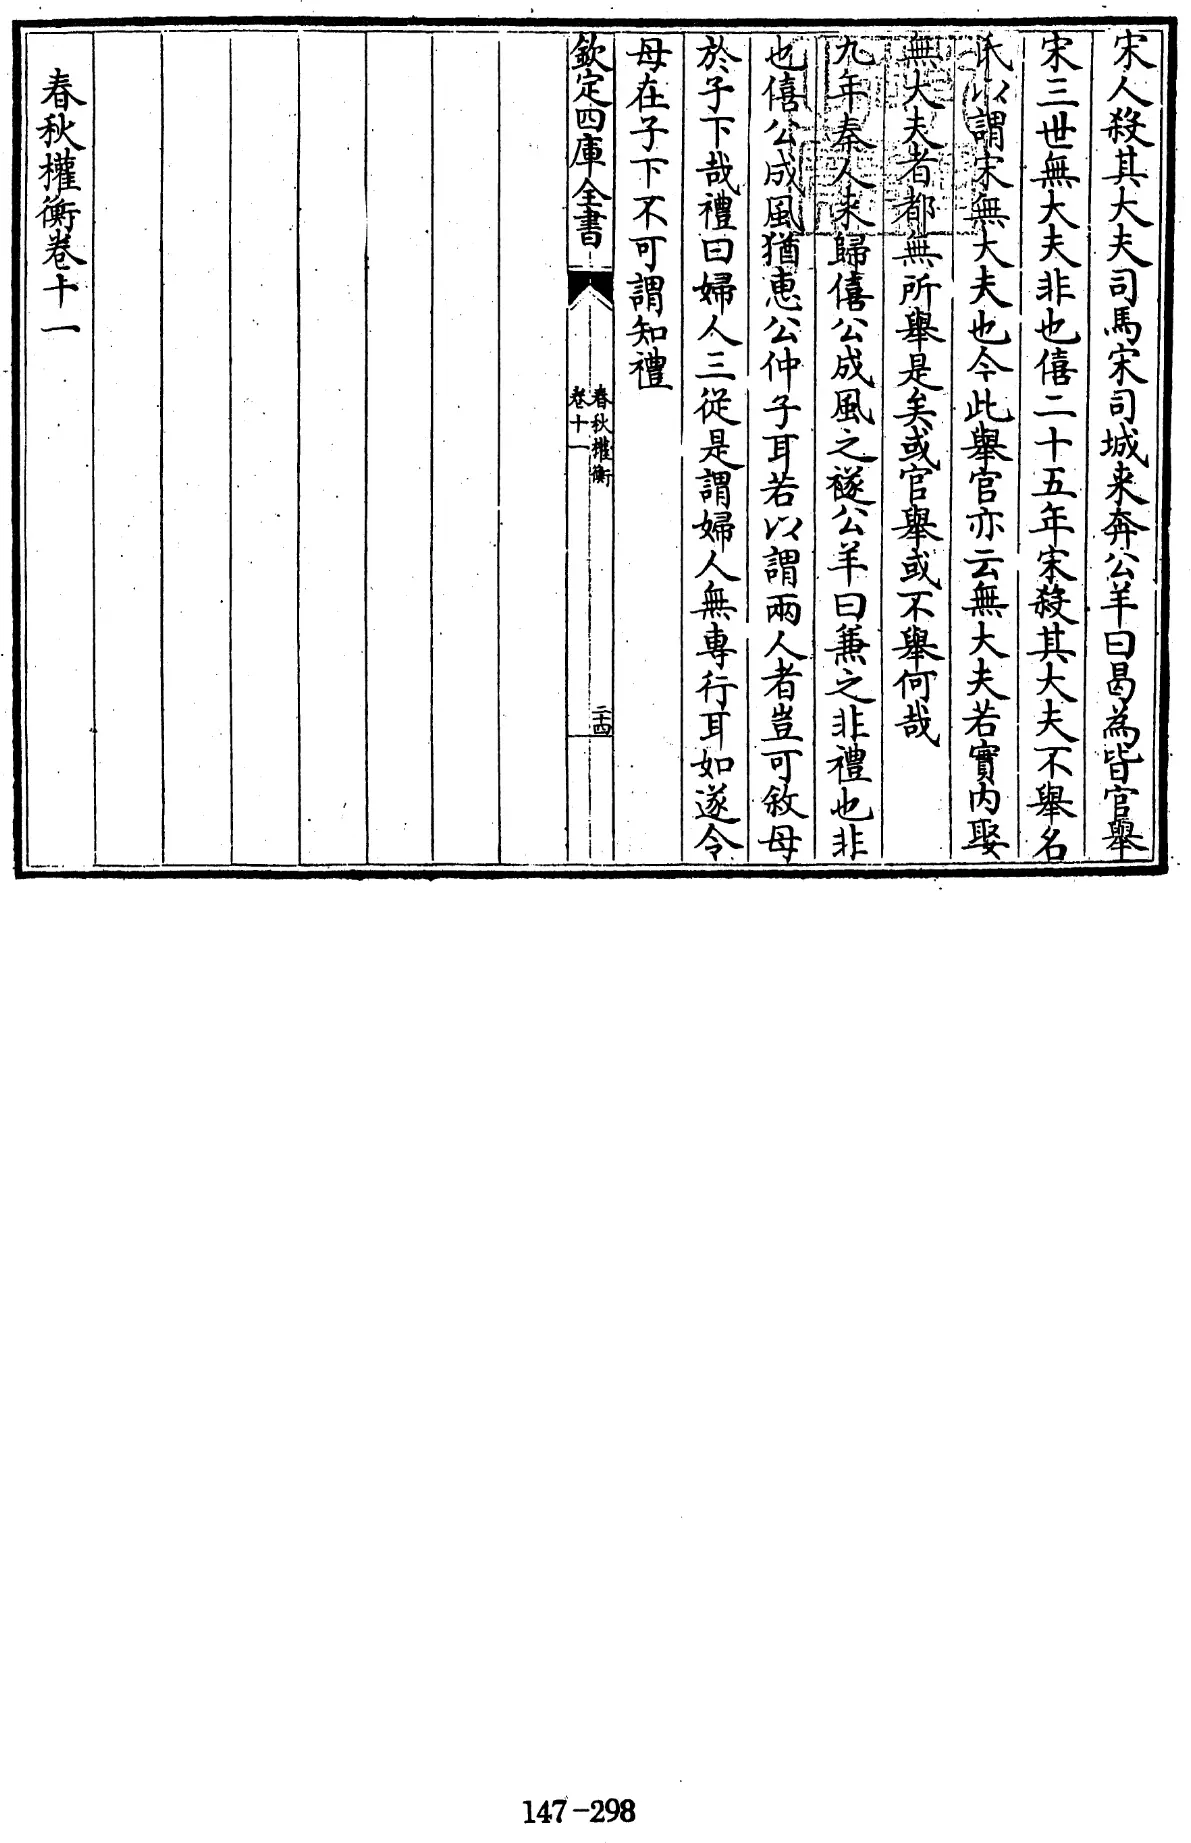 宋人殺其大夫司馬宋司城来奔公羊曰曷為皆官舉
宋三世無大夫非也僖二十五年宋殺其大夫不舉名
氏以謂宋無大夫也今此舉官亦云無大夫若實内娶
無大夫者都無所舉是矣或官舉或不舉何哉
九年秦人来歸僖公成風之襚公羊曰兼之非禮也非
也僖公成風猶恵公仲子耳若以謂兩人者豈可敘母
於子下哉禮曰婦人三從是謂婦人無專行耳如遂令
母在子下不可謂知禮
欽定四庫全書
春秋權衡
卷十一
二十四
春秋權衡卷十一
147-298